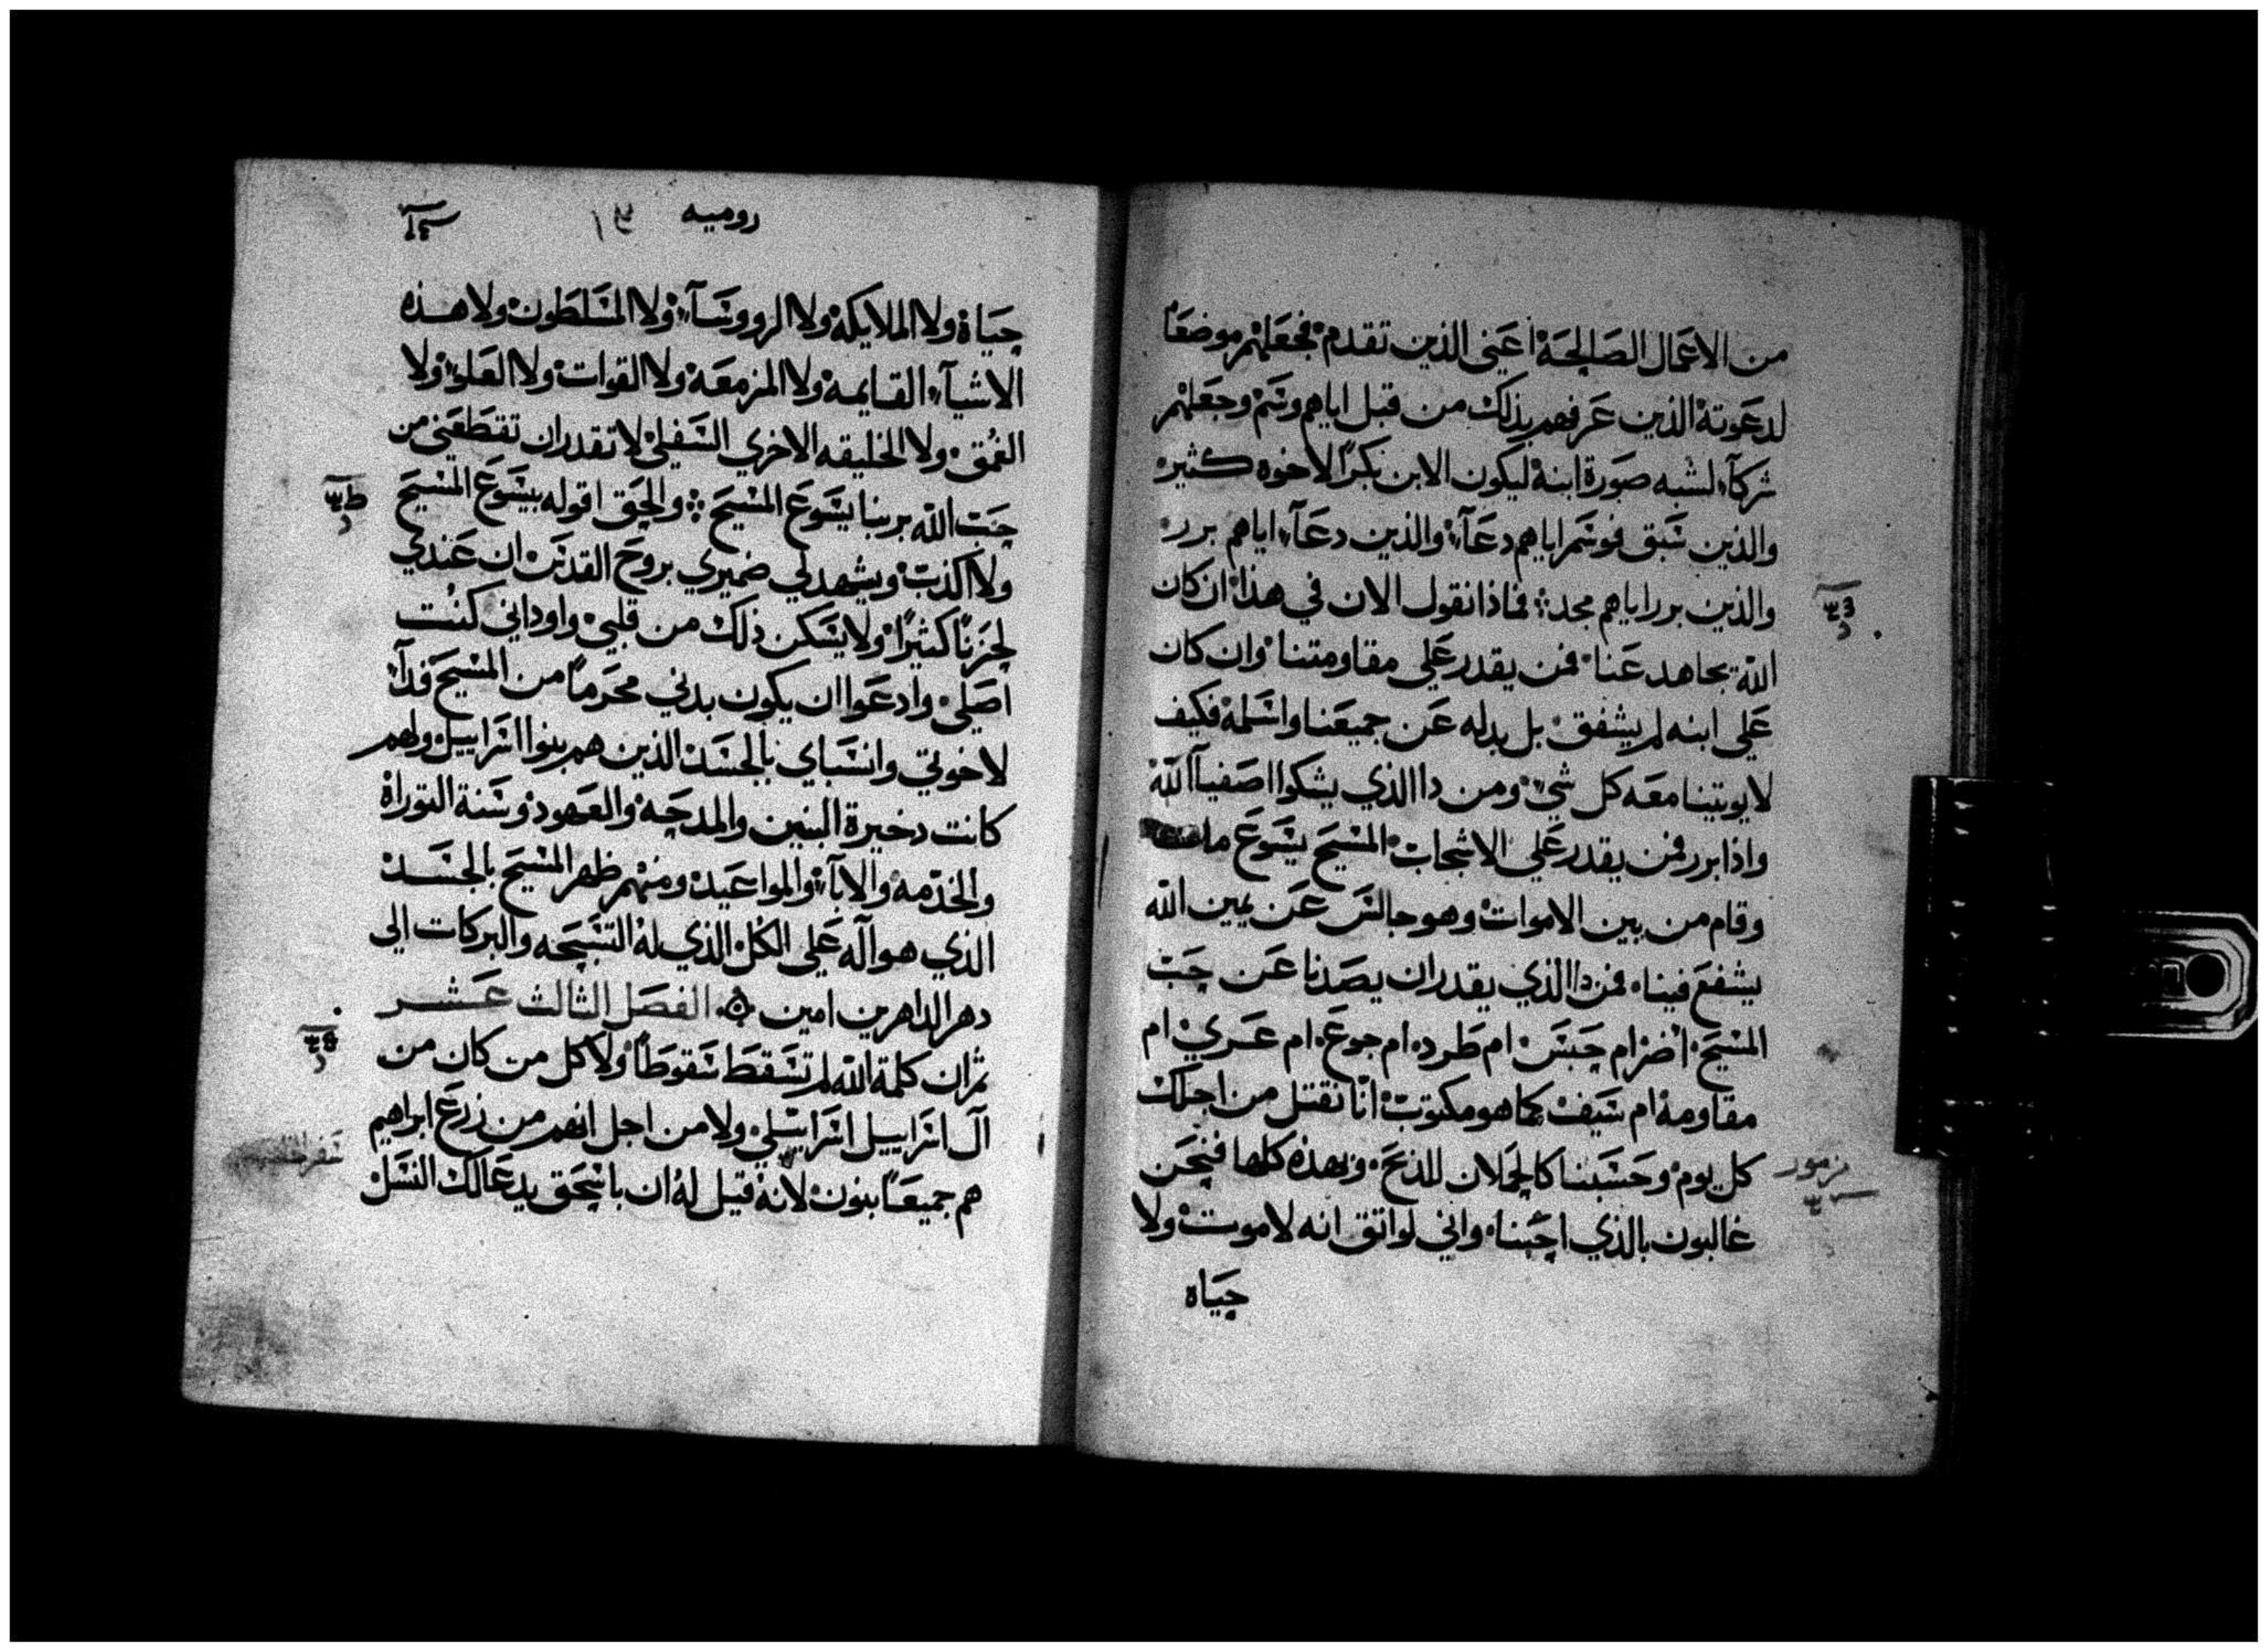 من الاعمال الصالحة اعني الذين تقدم فجعلهم موضعًا
لدعوته الذين عرفهم بذلك من قبل اياهم وسم وجعلهم
شركآء لشبه صورة ابنه ليكون الابن بكرًا لاخوه كثير
والذين سبق فوسم اياهم دعآء والذين دعآء اياهم برر
والذين برر اياهم مجد فماذا نقول الان في هذا ان كان
الله يجاهد عنا فمن يقدر علي مقاومتنا وان كان
علي ابنه لم يشفق بل بدله عن جميعنا واسلمه فكيف
لا يوتينا معه كل شي ومن دا الذي يشكوا اصفيآ الله
واذا برر فمن يقدر علي الاشجاب المسيح يسوع مات
وقام من بين الاموات وهو جالس عن يمين الله
يشفع فينا فمن دا الذي يقدر ان يصدنا عن حب
المسيح اضر ام حبس ام طرد ام جوع ام عري ام
مقاومه ام سيف كما هو مكتوب انا نقتل من اجلك
كل يوم وحسبنا كالحملان للذبح وبهذه كلها فنحن
غالبون بالذي احبنا واني لواثق انه لا موت ولا
حياه
مزمور
روميه
حياة ولا الملايكة ولا الرووسآء ولا المسلطون ولا هذه
الاشيآء القايمه ولا المزمعه ولا القوات ولا العلي ولا
العمق ولا الخليقه الاخري السفلي لا تقدر ان تقطعني من
حب الله بربنا يسوع المسيح والحق اقوله بيسوع المسيح
ولا اكذب ويشهد لي ضميري بروح القدس ان عندي
لحزنًا كثيرًا ولا يسكن ذلك من قلبي واوداني كنت
اصلي وادعوا ان يكون بدني محرمًا من المسيح فدآء
لاخوتي وانسباي بالجسد الذين هم بنوا اسراييل ولهم
كانت دخيرة البنين والمدحه والعهود وسنة التوراة
والخدمه والابآء والمواعيد ومنهم ظهر المسيح بالجسد
الذي هو آله علي الكل الذي له التسبحه والبركات الي
دهر الداهرين امين الفصل الثالث عشر
ثم ان كلمة الله لم تسقط سقوطًا ولا كل من كان من
آل اسراييل اسراييلي ولا من اجل انهم من زرع ابراهيم
هم جميعًا بنون لانه قيل له ان باسحق يدعا لك النسل